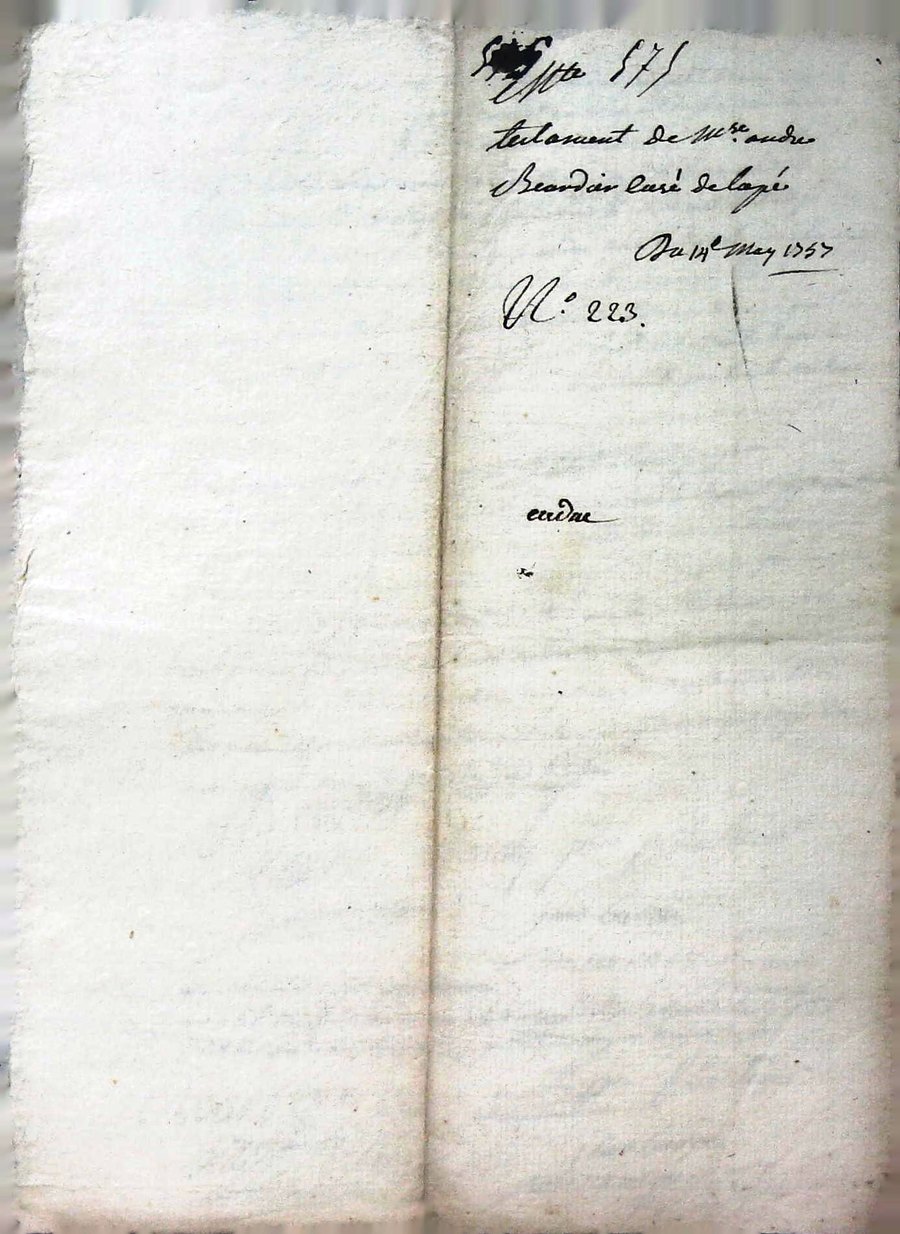 575
testament de Msre. andre
Beardier Curé de lapé
Du 14e May 1757
No. 223.